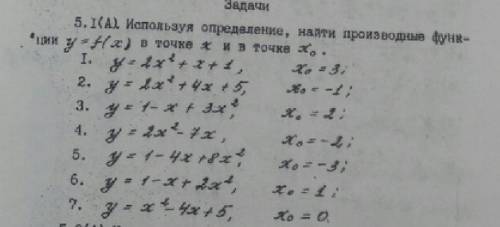 Задачи
5.1(А). Используя определение, найти производные функ-
ции y=f(x) в точке x и в точке x₀.
1. y=2x²+x+1, x₀=3;
2. y=2x²+4x+5, x₀=-1;
3. y=1-x+3x², x₀=2;
4. y=2x²-7x, x₀=-2;
5. y=1-4x+8x², x₀=-3;
6. y=1-x+2x², x₀=1;
7. y=x²-4x+5, x₀=0.